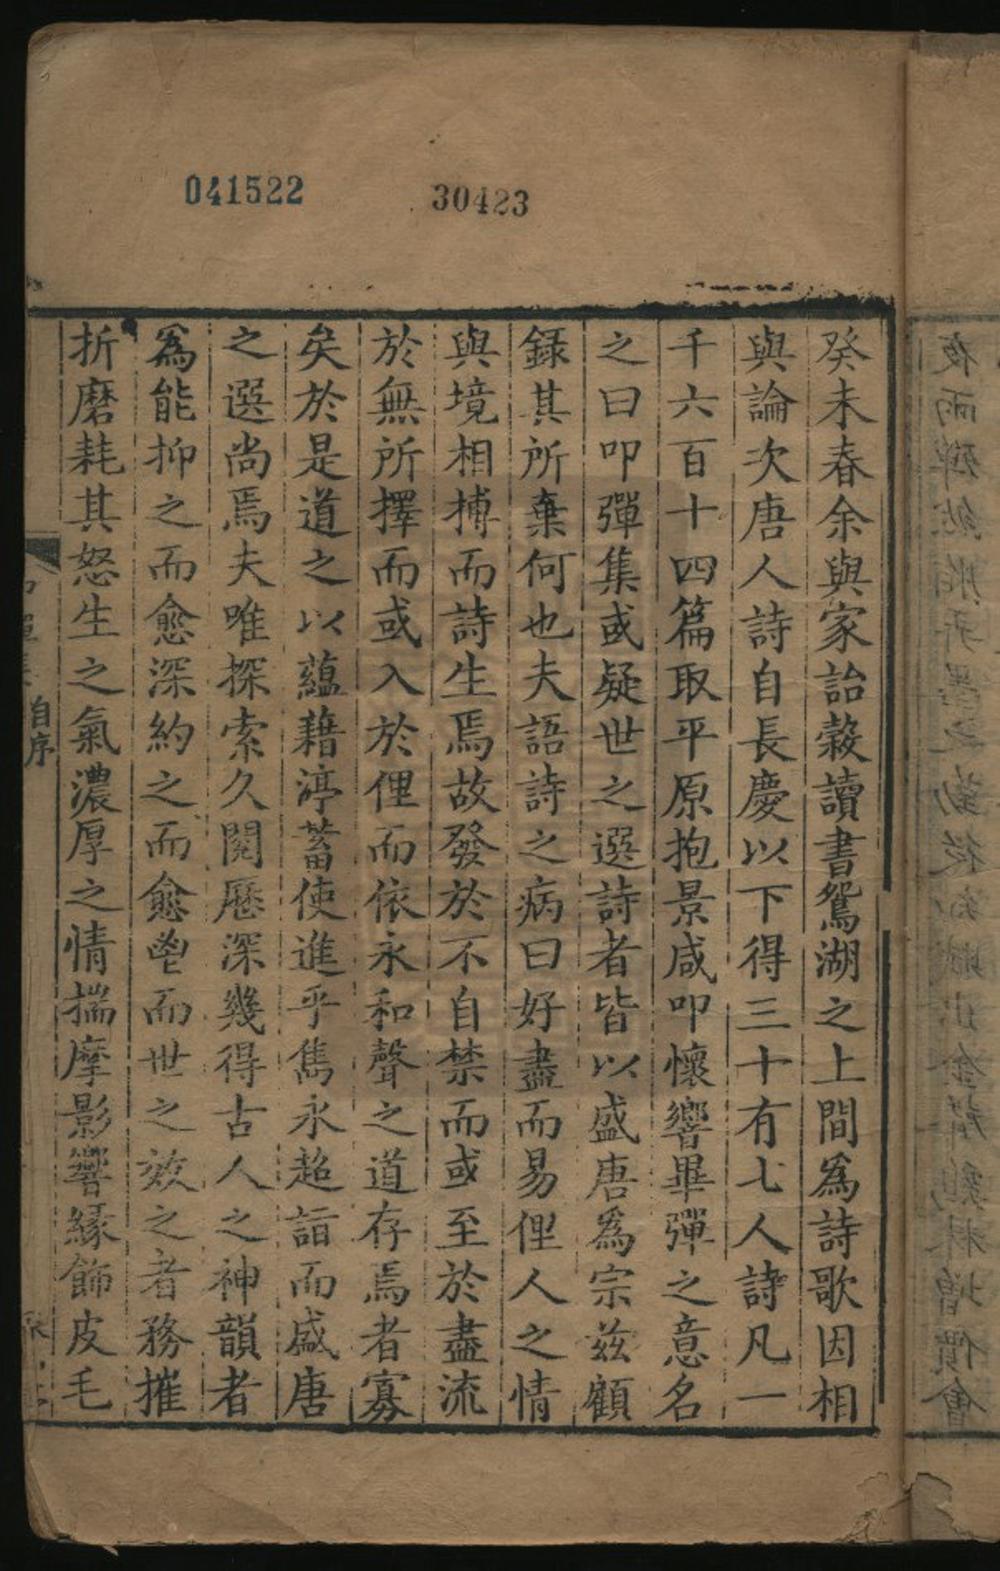 041522
30423
癸未春余與家詒縠讀書鴛湖之上間爲詩歌因相
與論次唐人詩自長慶以下得三十有七人詩凡一
千六百十四篇取平原抱景咸叩懷響畢彈之意名
之曰叩彈集或疑世之選詩者皆以盛唐爲宗茲顧
録其所棄何也夫語詩之病曰好盡而易俚人之情
與境相摶而詩生焉故發於不自禁而或至於盡流
於無所擇而或入於俚而依永和聲之道存焉者寡
矣於是道之以蘊藉渟蓄使進乎雋永超詣而盛唐
之選尚焉夫唯探索久閱歷深幾得古人之神韻者
爲能抑之而愈深約之而愈鬯而世之效之者務摧
折磨耗其怒生之氣濃厚之情揣摩影響緣飾皮毛
自序